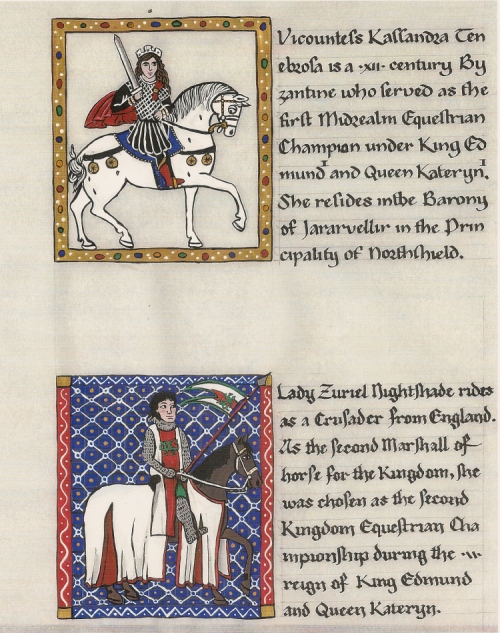 Vicountess Kassandra Ten
ebrosa is a ·xii· century By
zantine who served as the
first Midrealm Equestrian
Champion under King Ed
mund I and Queen Kateryn I.
She resides in the Barony
of Jararvellir in the Prin
cipality of Northshield.
Lady Zuriel Nightshade rides
as a Crusader from England.
As the second Marshall of
horse for the Kingdom, she
was chosen as the second
Kingdom Equestrian Cha
mpionship during the
reign of King Edmund
and Queen Kateryn.